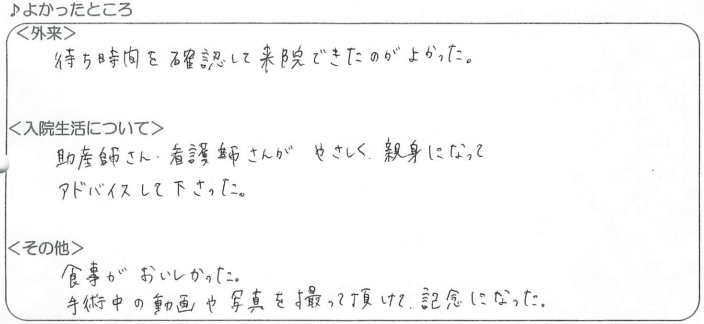 ♪よかったところ
＜外来＞
待ち時間を確認して来院できたのがよかった。
＜入院生活について＞
助産師さん・看護師さんが やさしく、親身になって
アドバイスして下さった。
＜その他＞
食事が おいしかった。
手術中の動画や写真を撮って頂けて、記念になった。